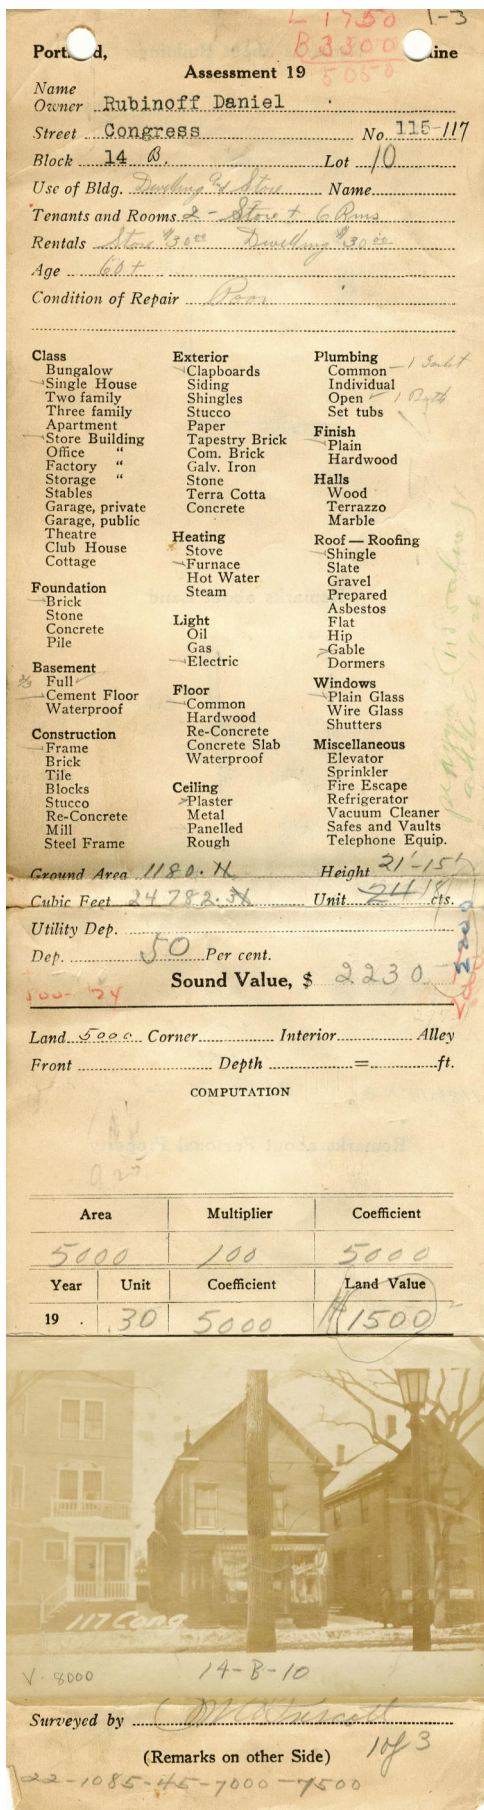 L 1750 1-3
B 3300
5050
Portland, Maine
Assessment 19
Name
Owner Rubinoff Daniel
Street Congress No. 115-117
Block 14 B. Lot 10
Use of Bldg. Dwelling & Store Name
Tenants and Rooms 2 - Store + 6 Rms
Rentals Store $30.00 Dwelling $30.00
Age 60 +
Condition of Repair Poor
Class
Bungalow
Single House
Two family
Three family
Apartment
Store Building
Office "
Factory "
Storage "
Stables
Garage, private
Garage, public
Theatre
Club House
Cottage
Foundation
Brick
Stone
Concrete
Pile
Basement
2/3 Full
Cement Floor
Waterproof
Construction
Frame
Brick
Tile
Blocks
Stucco
Re-Concrete
Mill
Steel Frame
Exterior
Clapboards
Siding
Shingles
Stucco
Paper
Tapestry Brick
Com. Brick
Galv. Iron
Stone
Terra Cotta
Concrete
Heating
Stove
Furnace
Hot Water
Steam
Light
Oil
Gas
Electric
Floor
Common
Hardwood
Re-Concrete
Concrete Slab
Waterproof
Ceiling
Plaster
Metal
Panelled
Rough
Plumbing
Common - 1 Toilet
Individual
Open 1 Bath
Set tubs
Finish
Plain
Hardwood
Halls
Wood
Terrazzo
Marble
Roof — Roofing
Shingle
Slate
Gravel
Prepared
Asbestos
Flat
Hip
Gable
Dormers
Windows
Plain Glass
Wire Glass
Shutters
Miscellaneous
Elevator
Sprinkler
Fire Escape
Refrigerator
Vacuum Cleaner
Safes and Vaults
Telephone Equip.
Ground Area 1180. Height 21'-15'
Cubic Feet 24782. Unit 24 18 cts.
Utility Dep.
Dep. 50 Per cent.
Sound Value, $ 2230
2200
500- '24
Land 5000 Corner Interior Alley
Front Depth = ft.
COMPUTATION
Area Multiplier Coefficient
5000 100 5000
Year Unit Coefficient Land Value
19 .30 5000 $1500
117 Cong
V. 8000 14-B-10
Surveyed by
(Remarks on other Side) 1 of 3
22-1085-45-7000-7500